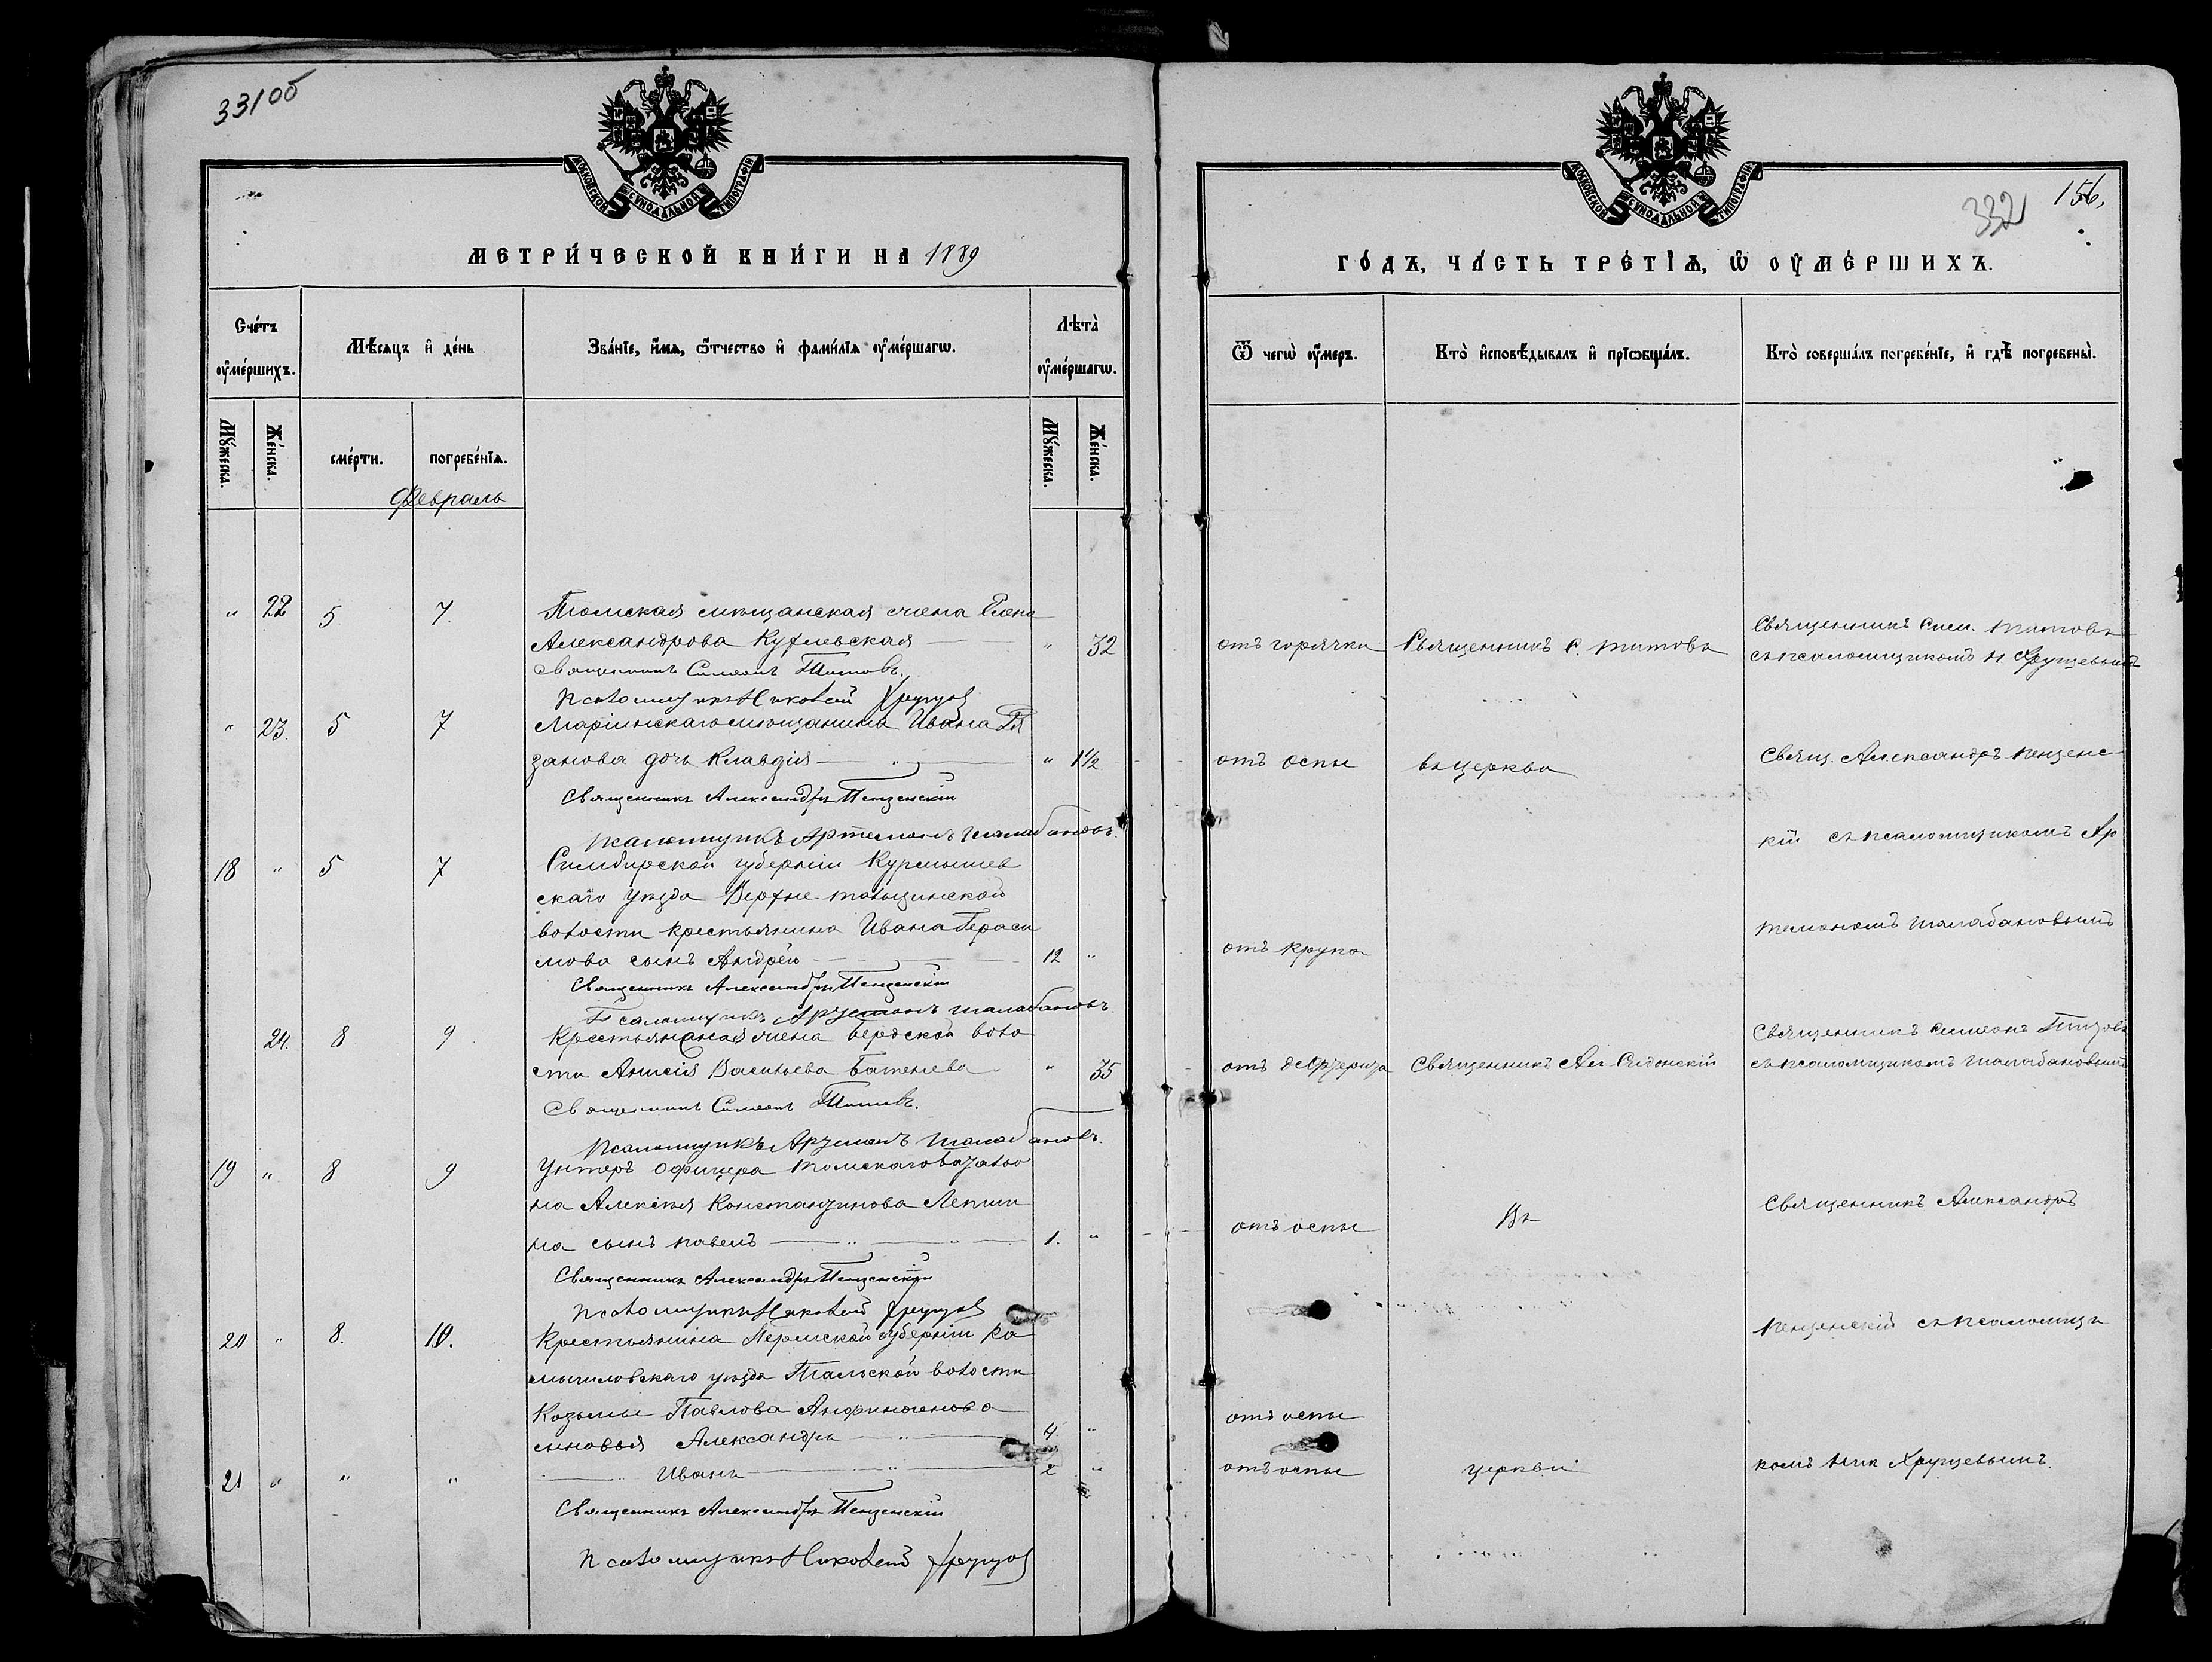 331об
МОСКОВСКОЙ СѴНОДАЛЬНОЙ ТИПОГРАФІИ
МЕТРИ́ЧЕСКОЙ КНИ́ГИ НА 1889
Сче́тъ оу҆ме́ршихъ.
Мѣ́сяцъ и҆ де́нь
Зва́нїе, и҆́мѧ, ѻ҆́тчество и҆ фами́лїѧ оу҆ме́ршагѡ.
Лѣта̀ оу҆ме́ршагѡ.
Мꙋ́жеска.
Же́нска.
сме́рти.
погребе́нїѧ.
Мꙋ́жеска.
Же́нска.
Февраль
" 22 5 7. Томская мѣщанская жена Елена
Александрова " 32
Священникъ Симеонъ Титовъ.
Псаломщикъ Николай Хрущов
" 23. 5 7 Маріинскаго мѣщанина Ивана Ря
занова дочь Клавдія " 1½
Священникъ Александръ Пензенскій
Псаломщикъ Артемонъ Шалабановъ.
18 " 5 7 Симбирской губерніи Курмышев
скаго уѣзда Верхне
волости крестьянина Ивана Гераси
мова сынъ Андрей 12 "
Священникъ Александръ Пензенскій
Псаломщикъ Артемонъ Шалабановъ
24. 8 9 Крестьянская жена Бердской воло
сти Анисія Васильева Батенева " 35
Священникъ Симеонъ Титовъ.
Псаломщикъ Артемонъ Шалабановъ.
19 " 8 9 Унтеръ офицера Томскаго баталіо
на Алексѣя Константинова Лепши
на сынъ Павелъ 1. "
Священникъ Александръ Пензенскій
Псаломщикъ Николай Хрущов
20 " 8. 10. Крестьянина Пермской губерніи Ка
мышловскаго уѣзда Тальской волости
Козьмы Павлова Анфиногенова
сыновья Александръ 4. "
21 " " " Иванъ 2 "
Священникъ Александръ Пензенскій
Псаломщикъ Николай Хрущов
332 156.
МОСКОВСКОЙ СѴНОДАЛЬНОЙ ТИПОГРАФІИ
ГО́ДЪ, ЧА́СТЬ ТРЕ́ТЇѦ, Ѡ҆ ОУ҆МЕ́РШИХЪ.
Ѿ чегѡ̀ оу҆́меръ.
Кто̀ и҆сповѣ́дывалъ и҆ прїѡбща́лъ.
Кто̀ соверша́лъ погребе́нїе, и҆ гдѣ̀ погребены̀.
отъ горячки Священникъ С. Титовъ Священникъ Сим. Титовъ
съ псаломщикомъ Н. Хрущевымъ
отъ оспы въ церкви Свящ. Александръ Пензенс-
кій съ псаломщикомъ Ар
темономъ Шалабановымъ
отъ крупа
Священникъ Симеонъ Титовъ
отъ Священникъ Ал. Сидонскій съ псаломщикомъ Шалабановымъ
отъ оспы Въ Священникъ Александръ
Пензенскій съ псаломщи
отъ оспы
отъ оспы церкви комъ Ник Хрущевымъ.